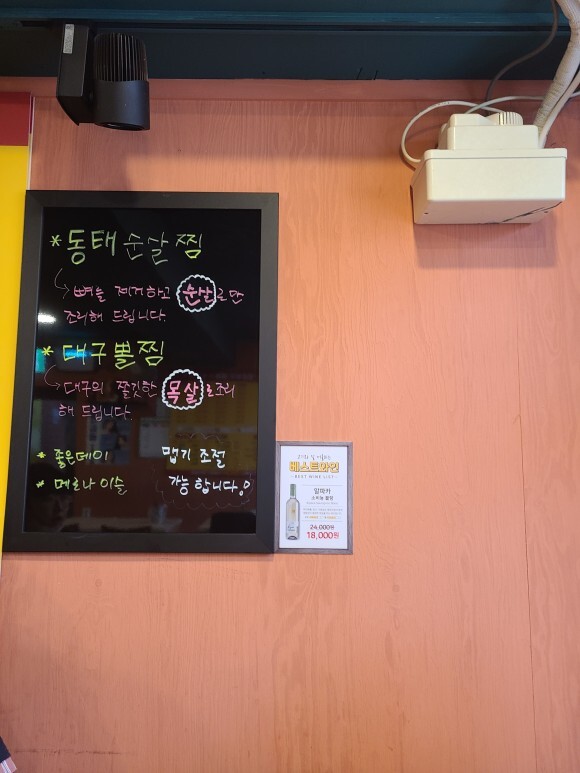 * 동태순살찜
뼈를 제거하고 순살로만
조리해 드립니다.
* 대구뽈찜
대구의 쫄깃한 목살로 조리
해 드립니다.
* 좋은데이
* 메로나 이슬
맵기 조절
가능합니다!
베스트와인
- BEST WINE LIST -
알마카
소비뇽 블랑
24,000원
18,000원